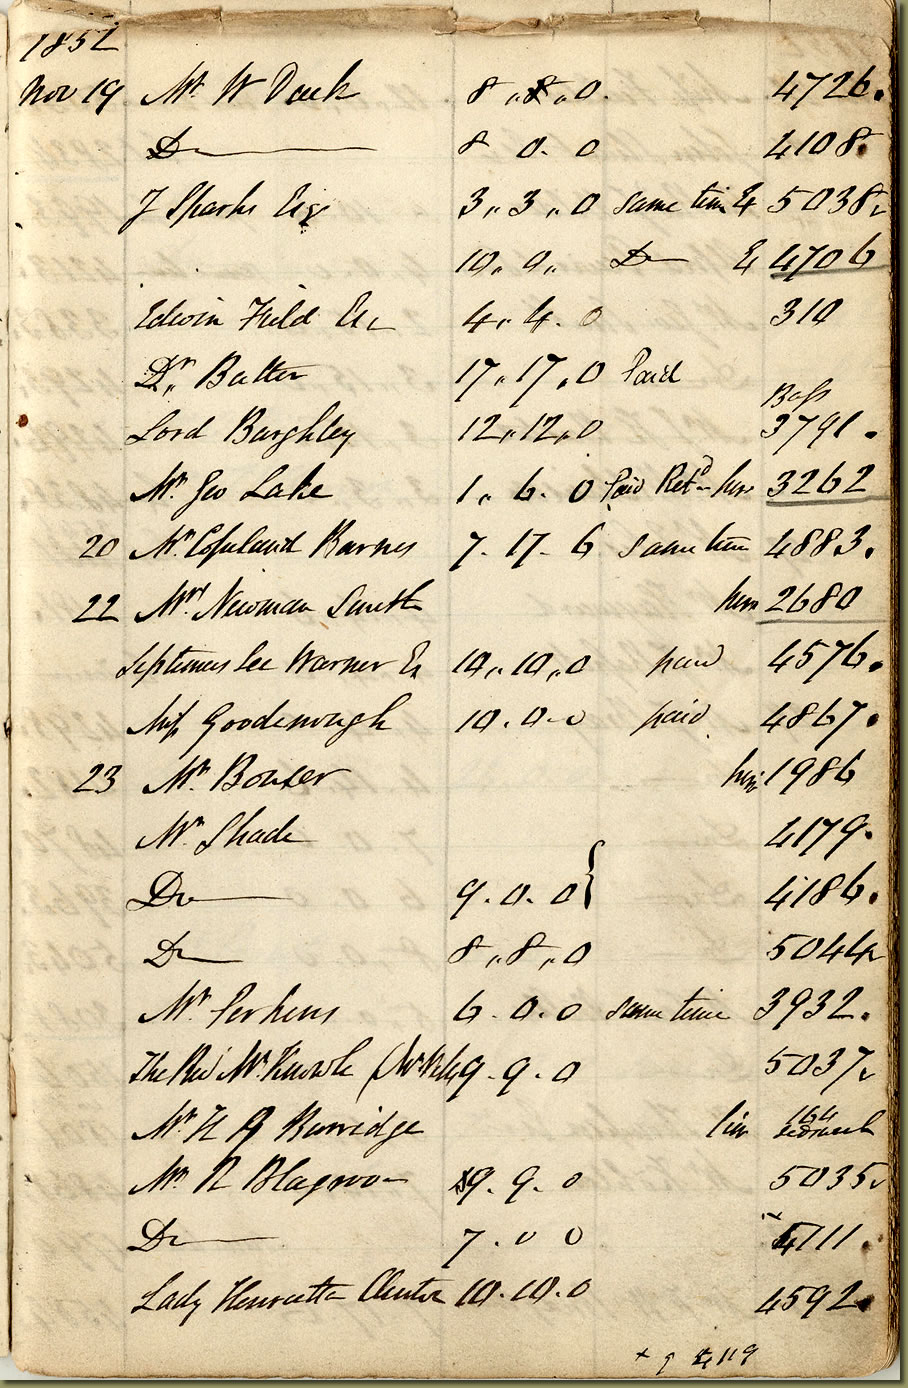 1852
Nov 19 Mr W Dack 8 ,, 8 ,, 0 . 4726 .
Do 8 0 . 0 4108 .
J Sparks Esq 3 ,, 3 ,, 0 same time & 5038
10 ,, 0 ,, Do & 4706
Edwin Field Esq 4 ,, 4 . 0 310
Dr ,, Batter 17 ,, 17 ,, 0 Paid
Bass
Lord Burghley 12 ,, 12 ,, 0 3791 .
Mr Geo Lake 1 ,, 6 . 0 Paid Retd hire 3262
20 Mr Copeland Barnes 7 - 17 - 6 same time 4883 .
22 Mrs Newman Smith hire 2680
Septimus Lee Warner Es 10 ,, 10 ,, 0 paid 4576 .
Miss Goodenough 10 . 0 - 0 paid 4867 .
23 Mr Bowser hire 1986
Mr Shade 4179 .
Do 9 . 0 . 0 { 4186 .
Do 8 ,, 8 ,, 0 5044
Mr Perkins 6 . 0 . 0 same time 3932 .
The Rev Mr 9 . 9 . 0 5037
Mr H Burridge hire 164
Mr R Blagrove 9 . 9 . 0 5035
Do 7 . 0 0 × 4111 .
Lady Henrietta 10 . 10 . 0 4592 .
× 9 4119